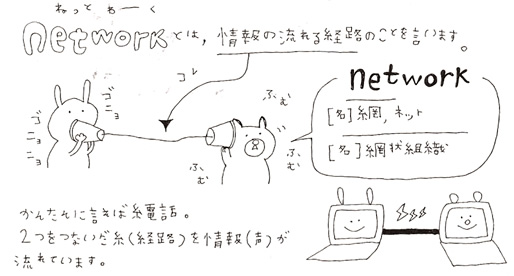 ねっと わーく
networkとは、情報の流れる経路のことを言います。
コレ
ゴニョゴニョ
ゴニョ
ふむ
ふむ
ふむ
network
[名]網,ネット
[名]網状組織
かんたんに言えば糸電話。
2つをつないだ糸(経路)を情報(声)が
流れています。